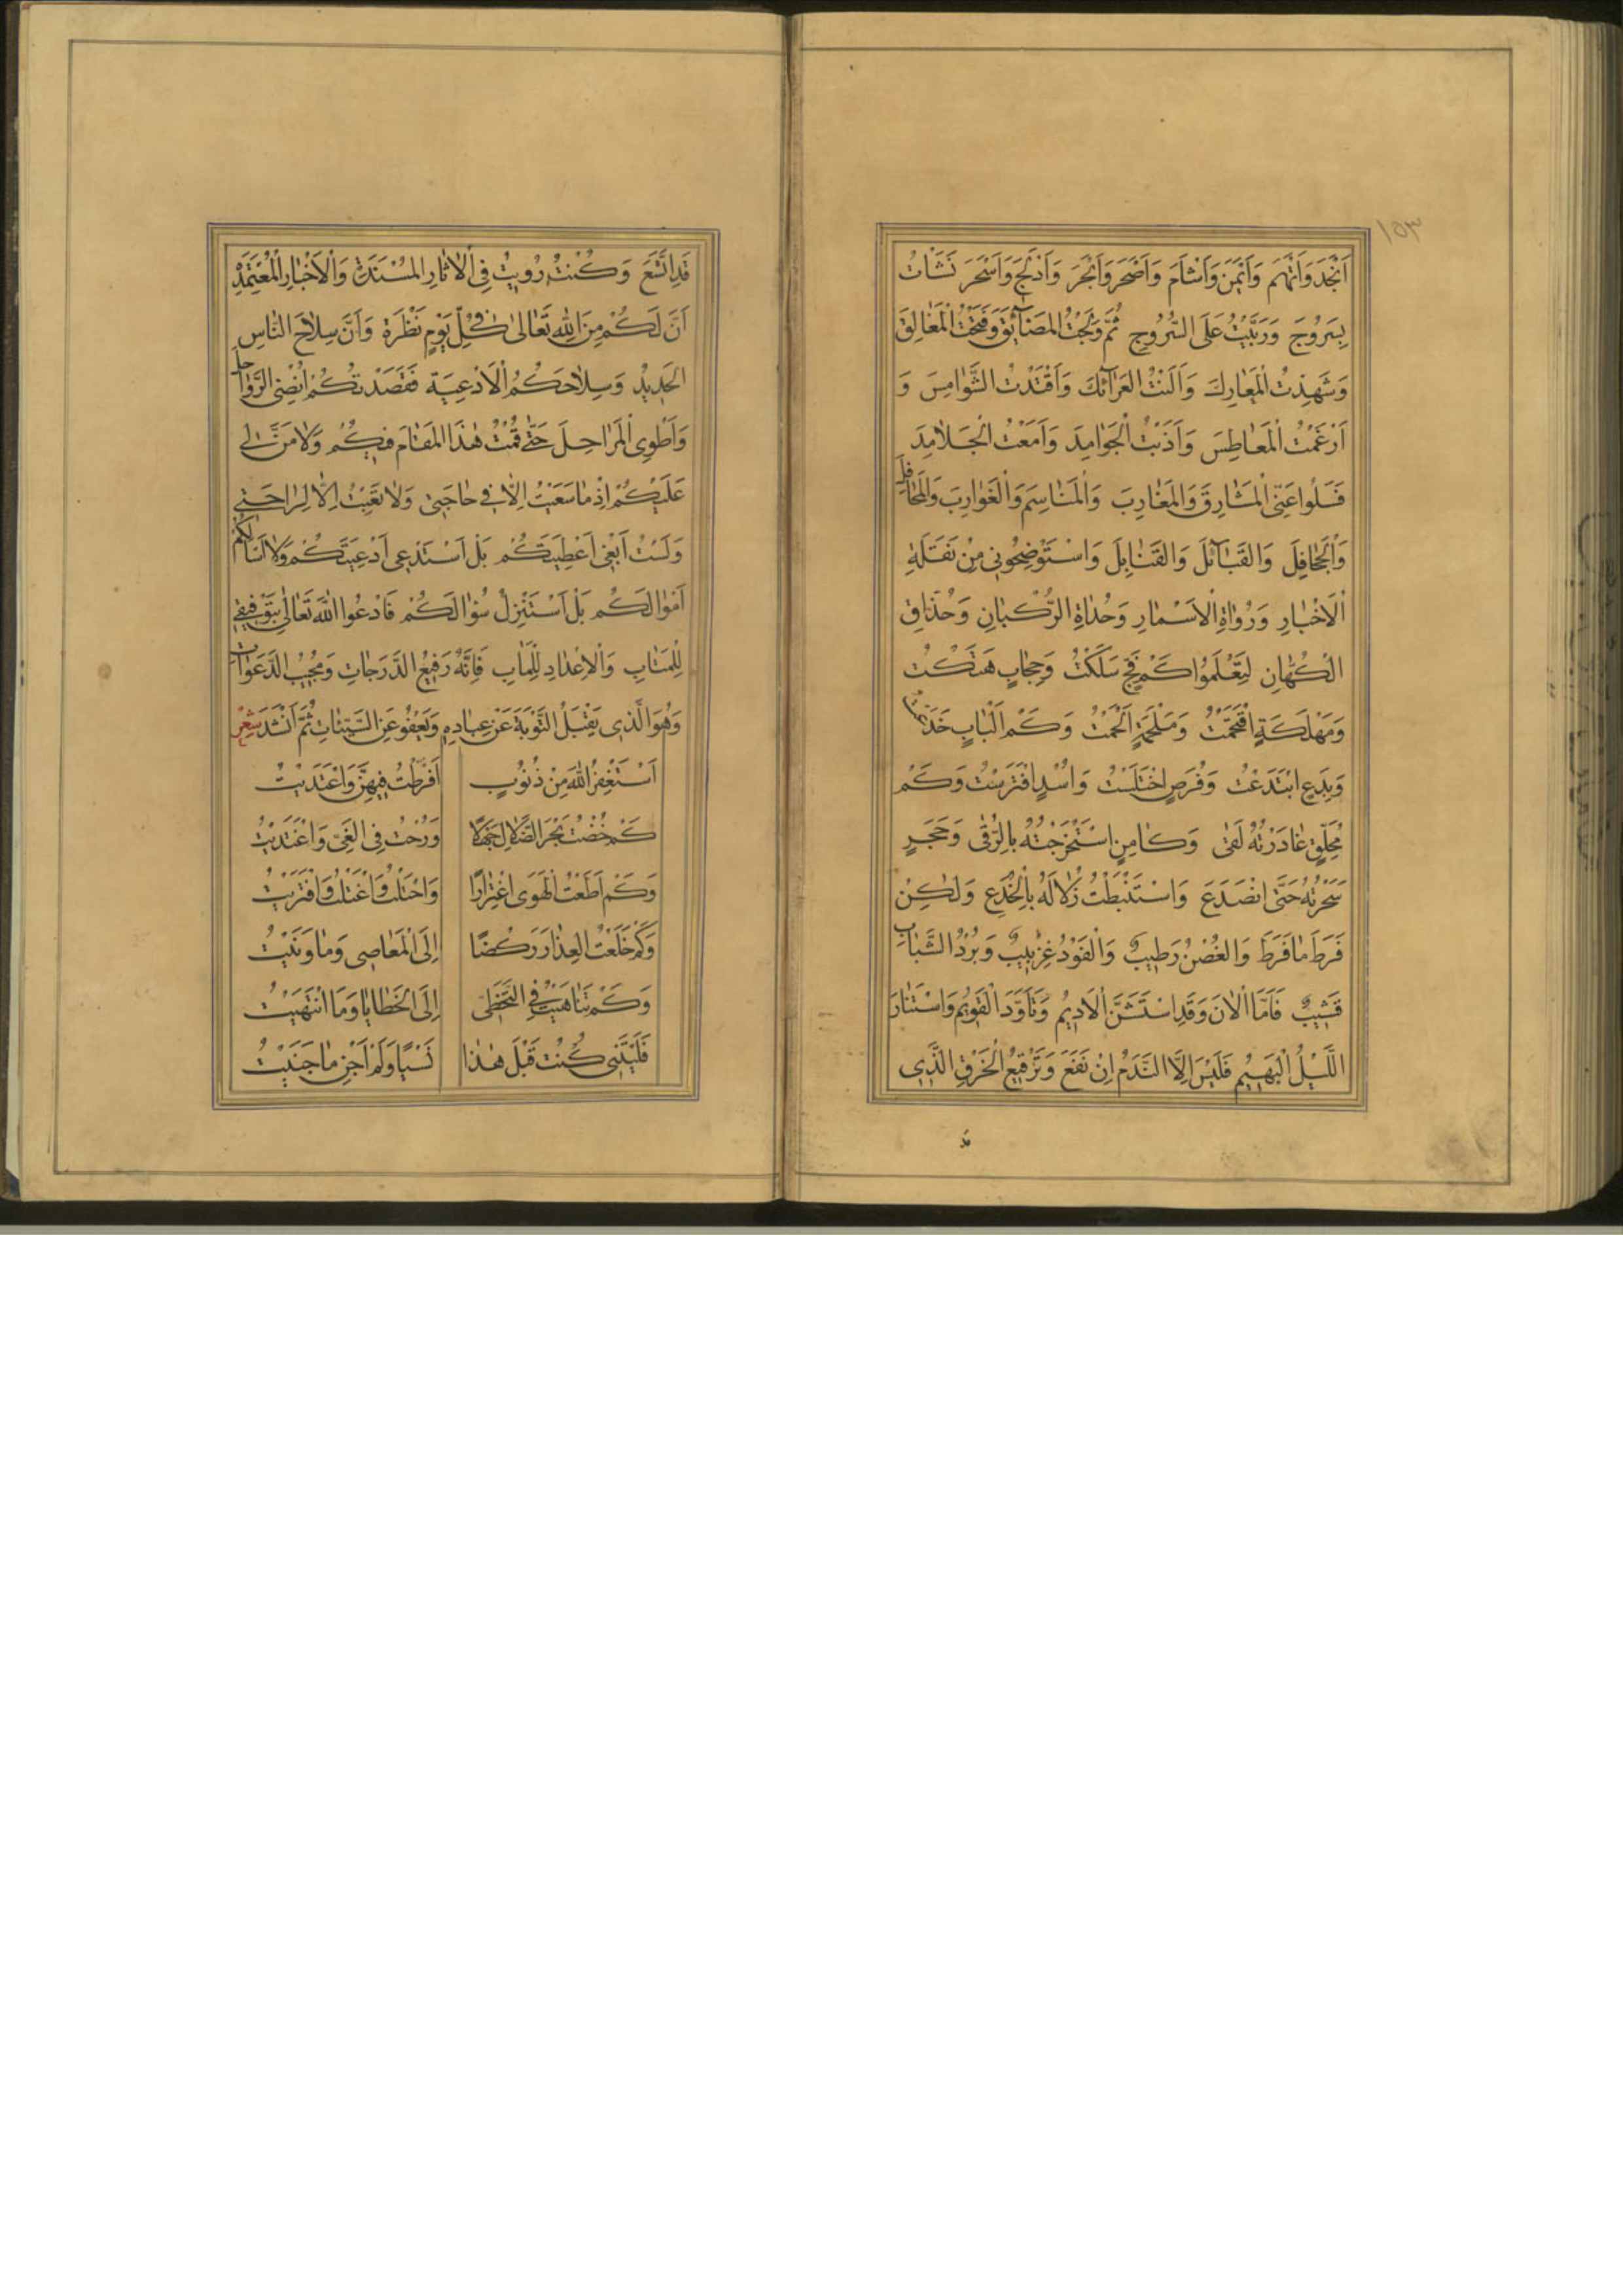 ١٥٣
اَنْجَدَ وَاَتْهَمَ وَاَيْمَنَ وَاَشْاَمَ وَاَصْحَرَ وَاَبْحَرَ وَاَدْلَجَ وَاَسْحَرَ نَشَاْتُ
بِسَرُوجَ وَرَبَيْتُ عَلَى السُّرُوجِ ثُمَّ وَلَجْتُ المَضَآئِقَ وَفَتَحْتُ الْمَغَالِقَ
وَشَهِدْتُ الْمَعَارِكَ وَاَلَنْتُ العَرَآئِكَ وَاقْتَدْتُ الشَّوَامِسَ وَ
اَرْغَمْتُ الْمَعَاطِسَ وَاَذَبْتُ الْجَوَامِدَ وَاَمَعْتُ الْجَلَامِدَ
فَسَلُوا عَنِّى الْمَشَارِقَ وَالْمَغَارِبَ وَالْمَنَاسِمَ وَالْغَوَارِبَ وَالْمَحَافِلَ
وَالْجَحَافِلَ وَالقَبَآئِلَ وَالقَنَابِلَ وَاسْتَوْضِحُونِى مِنْ نَقَلَةِ
الْاَخْبَارِ وَرُوَاةِ الْاَسْمَارِ وَحُدَاةِ الرُّكْبَانِ وَحُذَّاقِ
الْكُهَّانِ لِتَعْلَمُوا كَمْ فَجٍّ سَلَكْتُ وَحِجَابٍ هَتَكْتُ
وَمَهْلَكَةٍ اقْتَحَمْتُ وَمَلْحَمَةٍ اَلْحَمْتُ وَكَمْ اَلْبَابٍ خَدَعْتُ
وَبِدَعٍ ابْتَدَعْتُ وَفُرَصٍ اخْتَلَسْتُ وَاُسْدٍ افْتَرَسْتُ وَكَمْ
مُحَلِّقٍ غَادَرْتُهُ لَقًى وَكَامِنٍ اسْتَخْرَجْتُهُ بِالرُّقَى وَحَجَرٍ
سَحَرْتُهُ حَتَّى انْصَدَعَ وَاسْتَنْبَطْتُ زُلَالَهُ بِالْخُدَعِ وَلٰكِنْ
فَرَطَ مَا فَرَطَ وَالغُصْنُ رَطِيبٌ وَالْفَوْدُ غِرْبِيبٌ وَبُرْدُ الشَّبَابِ
قَشِيبٌ فَاَمَّا الْاٰنَ وَقَدِ اسْتَشَنَّ الْاَدِيمُ وَتَاَوَّدَ الْقَوِيمُ وَاسْتَنَارَ
اللَّيْلُ الْبَهِيمُ فَلَيْسَ اِلَّا النَّدَمُ اِنْ نَفَعَ وَتَرْقِيعُ الْخَرْقِ الَّذِى
قَدِ اتَّسَعَ وَكُنْتُ رُوِيتُ فِى الْاٰثَارِ الْمُسْنَدَةِ وَالْاَخْبَارِ الْمُعْتَمَدَةِ
اَنَّ لَكُمْ مِنَ اللهِ تَعَالىٰ فِى كُلِّ يَوْمٍ نَظْرَةً وَاَنَّ سِلَاحَ النَّاسِ
الْحَدِيدُ وَسِلَاحَكُمُ الْاَدْعِيَةُ فَقَصَدْتُكُمْ اُنْضِى الرَّوَاحِلَ
وَاَطْوِى الْمَرَاحِلَ حَتّٰى قُمْتُ هٰذَا الْمَقَامَ فِيكُمْ وَلَا مَنَّ لِى
عَلَيْكُمْ اِذْ مَا سَعَيْتُ اِلَّا فِى حَاجَتِى وَلَا تَعِبْتُ اِلَّا لِرَاحَتِى
وَلَسْتُ اَبْغِى اَعْطِيَتَكُمْ بَلْ اَسْتَدْعِى اَدْعِيَتَكُمْ وَلَا اَسْاَلُكُمْ
اَمْوَالَكُمْ بَلْ اَسْتَنْزِلُ سُؤَالَكُمْ فَادْعُوا اللهَ تَعَالىٰ بِتَوْفِيقِى
لِلْمَتَابِ وَالْاِعْدَادِ لِلْمَاٰبِ فَاِنَّهُ رَفِيعُ الدَّرَجَاتِ وَمُجِيبُ الدَّعَوَاتِ
وَهُوَ الَّذِى يَقْبَلُ التَّوْبَةَ عَنْ عِبَادِهِ وَيَعْفُو عَنِ السَّيِّئَاتِ ثُمَّ اَنْشَدَ شِعْر
اَسْتَغْفِرُ اللهَ مِنْ ذُنُوبٍ اَفْرَطْتُ فِيهِنَّ وَاعْتَدَيْتُ
كَمْ خُضْتُ بَحْرَ الضَّلَالِ جَهْلًا وَرُحْتُ فِى الْغَىِّ وَاغْتَدَيْتُ
وَكَمْ اَطَعْتُ الْهَوَى اغْتِرَارًا وَاحْتَلْتُ وَاغْتَلْتُ وَافْتَرَيْتُ
وَكَمْ خَلَعْتُ الْعِذَارَ رَكْضًا اِلَى الْمَعَاصِى وَمَا وَنَيْتُ
وَكَمْ تَنَاهَيْتُ فِى التَّخَطِّى اِلَى الْخَطَايَا وَمَا انْتَهَيْتُ
فَلَيْتَنِى كُنْتُ قَبْلَ هٰذَا نَسْيًا وَلَمْ اَجْنِ مَا جَنَيْتُ